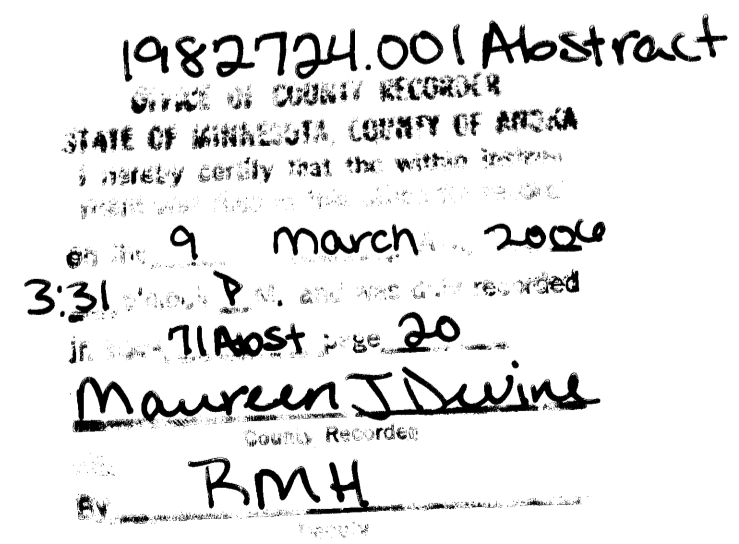 1982724.001 Abstract
OFFICE OF COUNTY RECORDER
STATE OF MINNESOTA, COUNTY OF ANOKA
I hereby certify that the within instru-
ment was filed in this office for record
on the 9 March 2006
3:31 o'clock P M. and was duly recorded
in 71 Abst page 20
Maureen J Devine
County Recorder
By RMH
Deputy